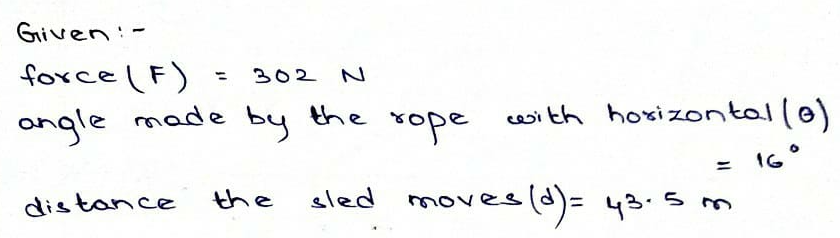 Given :-
force (F) = 302 N
angle made by the rope with horizontal (θ)
= 16°
distance the sled moves (d) = 43.5 m